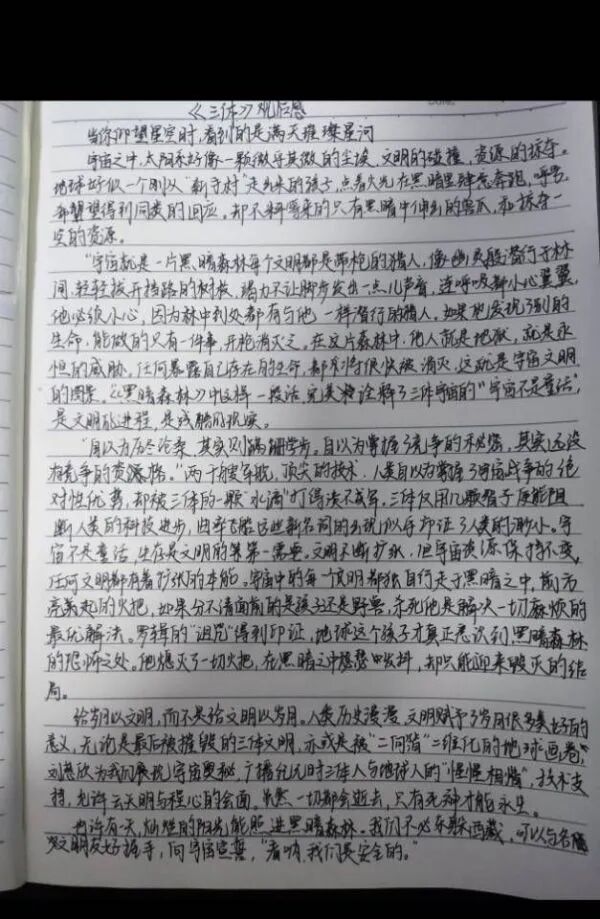 《三体》观后感
当你仰望星空时,看到的是满天璀璨星河
宇宙之中,太阳系好像一颗微乎其微的尘埃,文明的碰撞,资源的掠夺。
地球好似一个刚从"新手村"走出来的孩子,点着火光在黑暗里肆意奔跑,呼号,
希望得到同类的回应,却不料等来的只有黑暗中伸出的害爪,和掠夺一
空的资源。
"宇宙就是一片黑暗森林每个文明都是带枪的猎人,像幽灵般潜行于林
间,轻轻拨开挡路的树枝,竭力不让脚步发出一点儿声音,连呼吸都小心翼翼,
他必须小心,因为林中到处都有与他一样潜行的猎人,如果他发现了别的
生命,能做的只有一件事,开枪消灭之。在这片森林中,他人就是地狱,就是永
恒的威胁,任何暴露自己存在的生命,都将很快被消灭,这就是宇宙文明
的图景。《黑暗森林》中这样一段话,完美诠释了三体宇宙的"宇宙不是童话",
是文明的进程,是残酷的现实。
"自以为历尽沧桑,其实则蹒跚学步。自以为掌握了竞争的秘密,其实还没
有竞争的资格。"两千艘军舰,顶尖的技术,人类自以为掌握了宇宙战争的绝
对性优势,却被三体的一颗"水滴"打得溃不成军。三体仅用几颗智子便能阻
断人类的科技进步,曲率飞船这些新名词的出现似乎印证了人类的渺小。宇
宙不是童话,生存是文明的第一需要,文明不断扩张,但宇宙资源保持不变,
任何文明都有着扩张的本能。宇宙中的每一个文明都独自行走于黑暗之中,前方
亮着的火把,如果分不清面前的是孩子还是野兽,杀死他是解决一切麻烦的
最优解法。罗辑的"诅咒"得到印证,地球这个孩子才真正意识到黑暗森林
的恐怖之处。他熄灭了一切火把,在黑暗之中瑟瑟发抖,却只能迎来毁灭的结
局。
给岁月以文明,而不是给文明以岁月。人类历史漫漫,文明赋予了岁月很多美好的
意义,无论是最后被摧毁的三体文明,亦或是被"二向箔"二维化的地球画卷,
刘慈欣为我们展现宇宙奥秘,广播纪元时三体人与地球人的"惺惺相惜",技术支
持,允许云天明与程心的会面。虽然一切都会逝去,只有死神才能永生。
也许有一天,灿烂的阳光能照进黑暗森林。我们不必东躲西藏,可以与各
文明友好握手,向宇宙宣誓,"看呐,我们是安全的。"